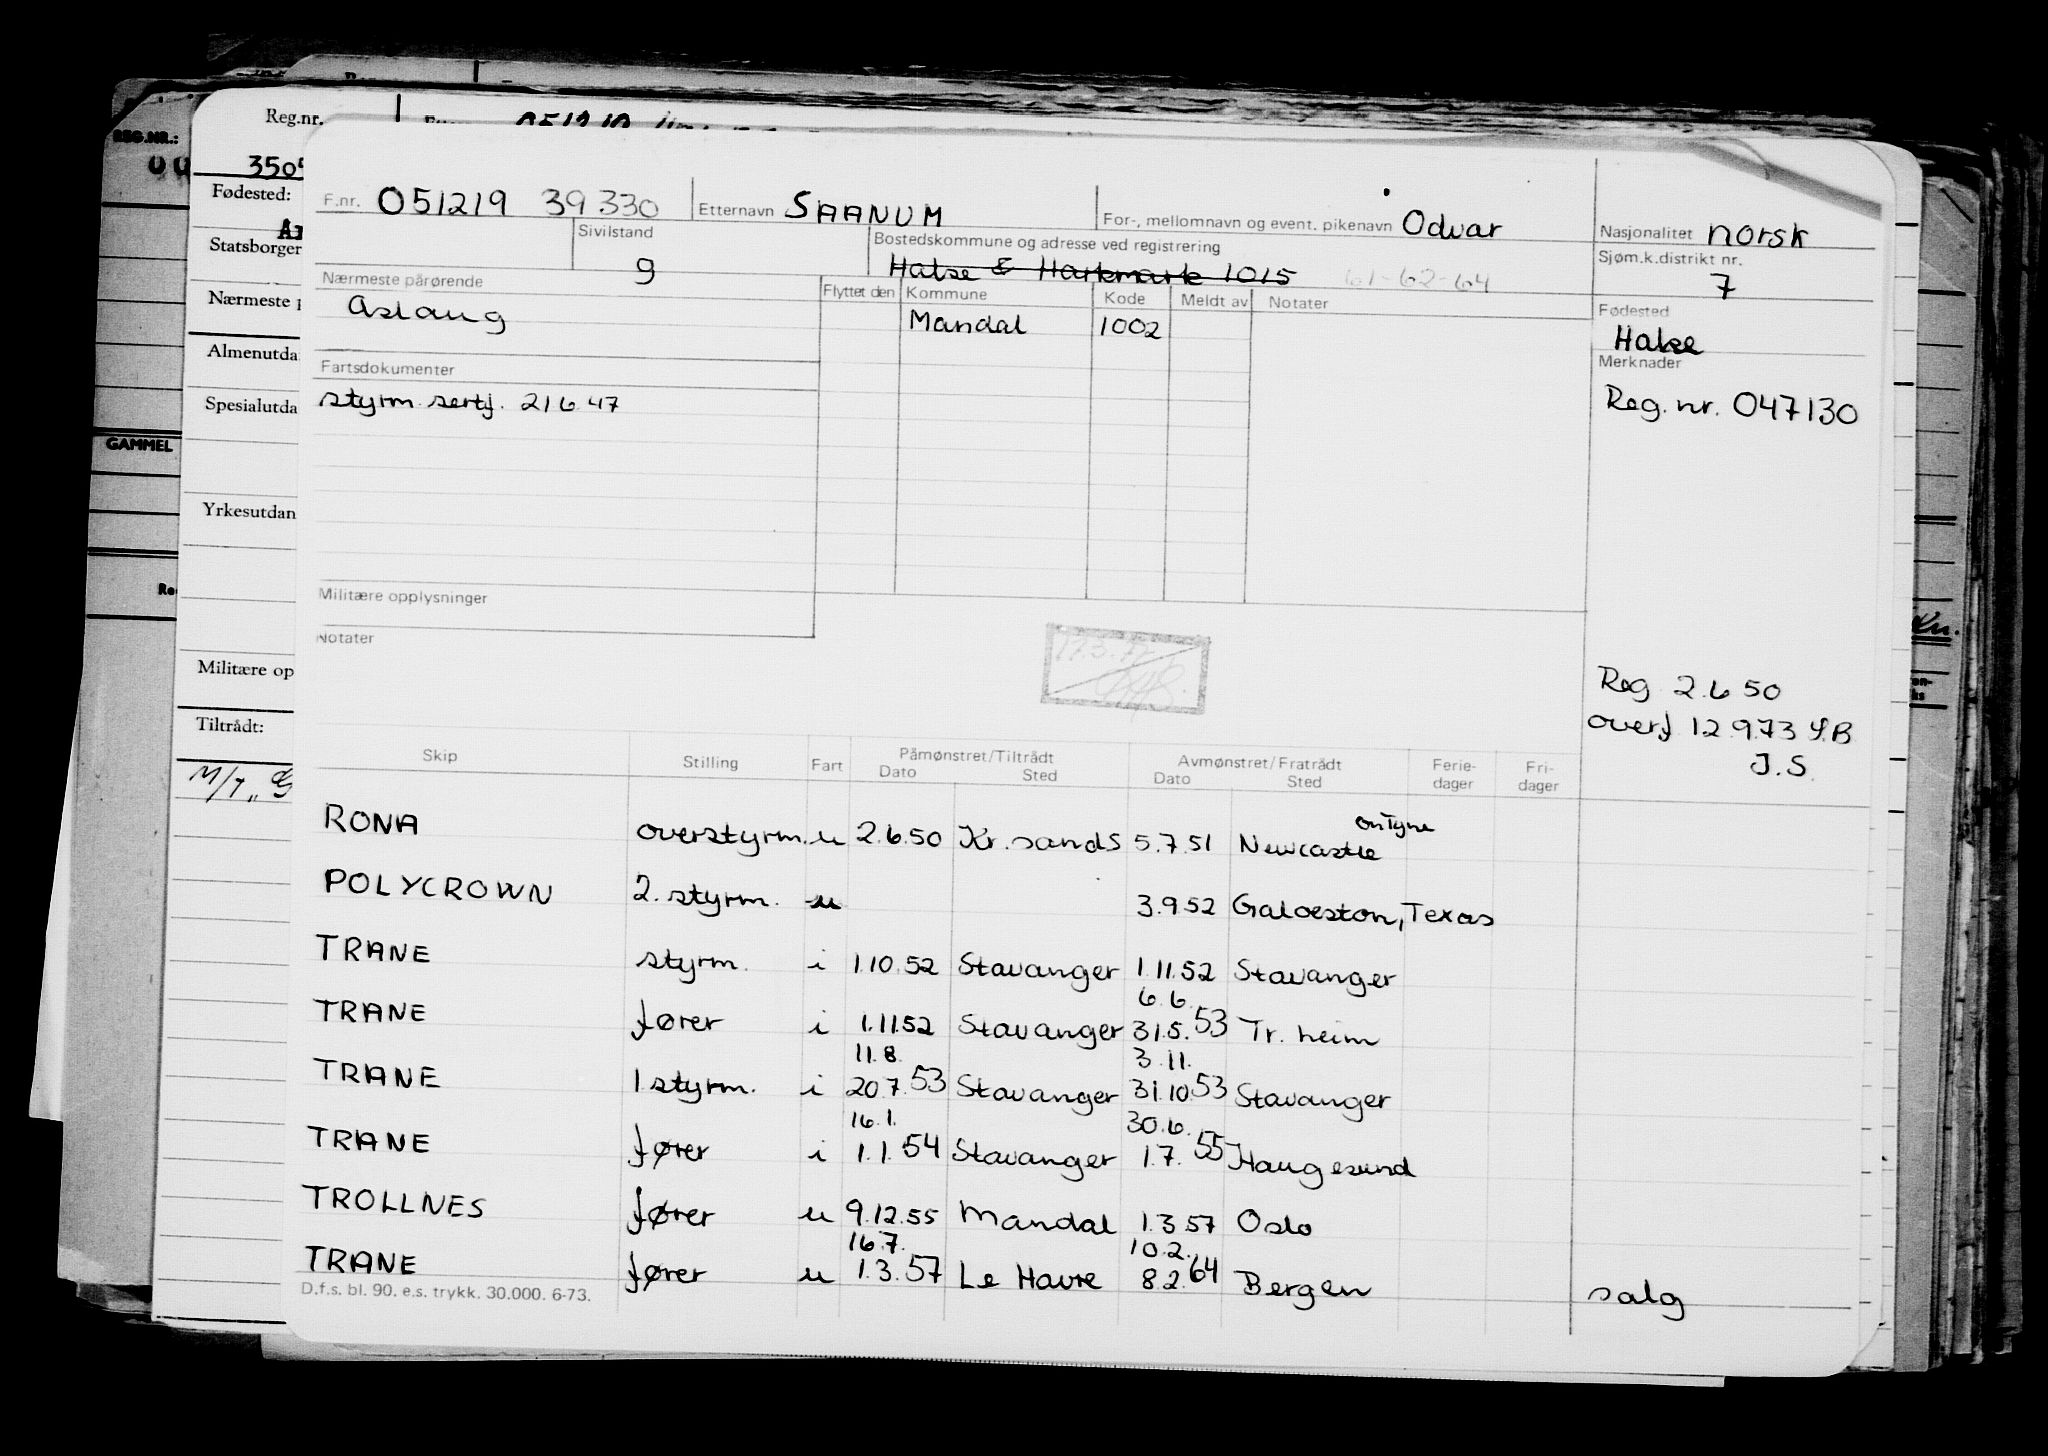 Reg.nr.
REG.NR.:
3505
Fødested:
Statsborger
Nærmeste p
Almenutda
Spesialutda
GAMMEL
Yrkesutdan
Militære op
Tiltrådt:
M/T „G
F.nr. 051219 39330 Etternavn SAANUM For-, mellomnavn og event. pikenavn Odvar Nasjonalitet norsk
Sivilstand g Bostedskommune og adresse ved registrering Halse & Harkmark 1015 61-62-64 Sjøm.k.distrikt nr. 7
Nærmeste pårørende Flyttet den Kommune Kode Meldt av Notater Fødested
Aslaug Mandal 1002 Halse
Fartsdokumenter Merknader
styrm. sertf. 21.6.47 Reg. nr. 047130
Militære opplysninger
Notater
Reg 2.6 50
overf 12.9.73 S.B
J.S.
Skip Stilling Fart Påmønstret/Tiltrådt Avmønstret/Fratrådt Ferie- Fri-
Dato Sted Dato Sted dager dager
RONA overstyrm. u 2.6.50 Kr.sands 5.7.51 Newcastle onTyne
POLYCROWN 2. styrm. u 3.9.52 Galveston, Texas
TRANE styrm. i 1.10.52 Stavanger 1.11.52 Stavanger
6.6.
TRANE fører i 1.11.52 Stavanger 31.5.53 Tr.heim
11.8. 3.11.
TRANE 1 styrm. i 20.7.53 Stavanger 31.10.53 Stavanger
16.1. 30.6.
TRANE fører i 1.1.54 Stavanger 1.7.55 Haugesund
TROLLNES fører u 9.12.55 Mandal 1.3.57 Oslo
16.7. 10.2.
TRANE fører u 1.3.57 Le Havre 8.2.64 Bergen salg
D.f.s. bl. 90. e.s. trykk. 30.000. 6-73.